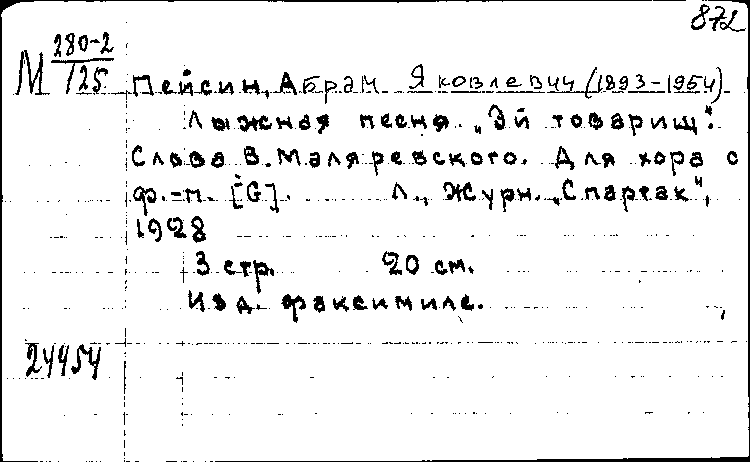 872
М 280-2/125
Пейсин, Абрам Яковлевич (1893-1954)
Лыжная песня „Эй товарищ".
Слова В. Маляревского. Для хора с
ф.-п. [G]. Л., Журн. „Спартак",
1928
3 стр. 20 см.
Изд. факсимиле.
24454